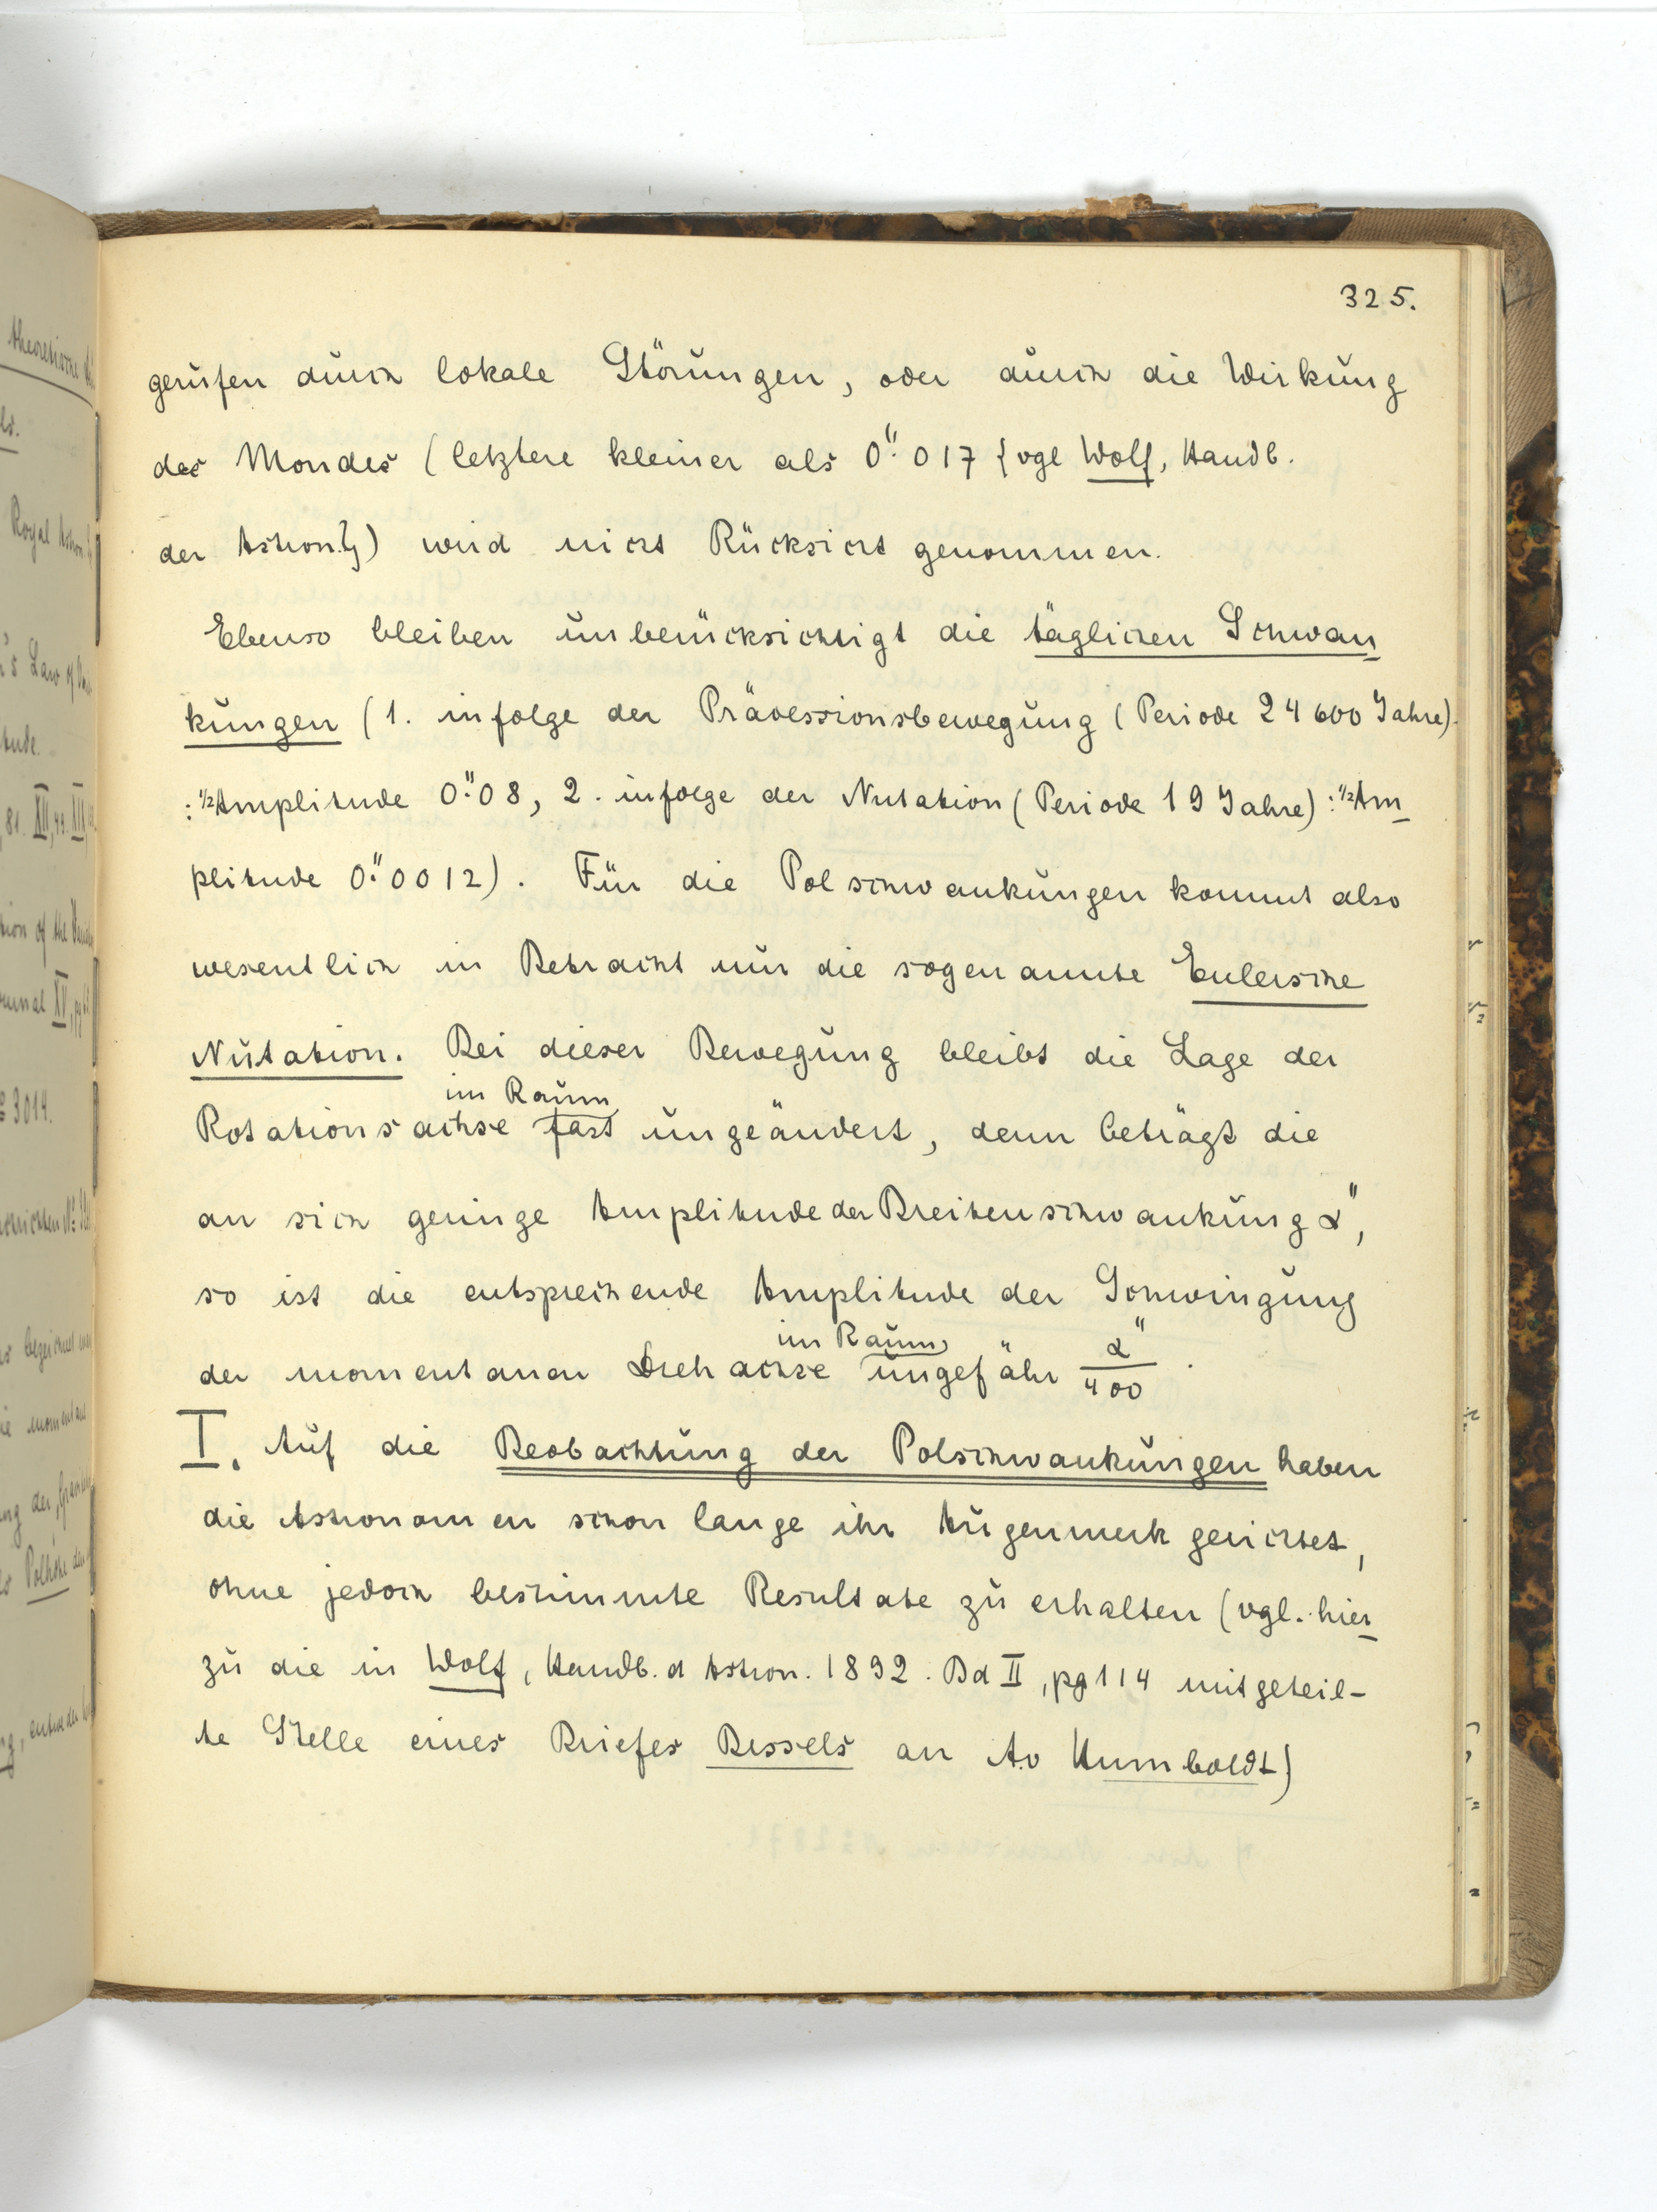 325.
gerufen durch lokale Störungen, oder durch die Wirkung
des Mondes (letztere kleiner als 0."017 {vgl Wolf, Handb.
der Astron.}) wird nicht Rücksicht genommen.
Ebenso bleiben unberücksichtigt die täglichen Schwan
kungen (1. infolge der Präcessionsbewegung (Periode 24600 Jahre).
: ½ Amplitude 0."08, 2. infolge der Nutation (Periode 19 Jahre): ½ Am
plitude 0."0012). Für die Polschwankungen kommt also
wesentlich in Betracht nur die sogenannte Eulersche
Nutation. Bei dieser Bewegung bleibt die Lage der
im Raum
Rotationsachse fast ungeändert, denn beträgt die
an sich geringe Amplitude der Breitenschwankung α",
so ist die entsprechende Amplitude der Schwingung
im Raum
der momentanen Drehachse ungefähr α"/400.
I. Auf die Beobachtung der Polschwankungen haben
die Astronomen schon lange ihr Augenmerk gerichtet,
ohne jedoch bestimmte Resultate zu erhalten (vgl. hier
zu die in Wolf, Handb. d Astron. 1892. Bd II, pg 114 mitgeteil-
te Stelle eines Briefes Bessels an A.v Humboldt)